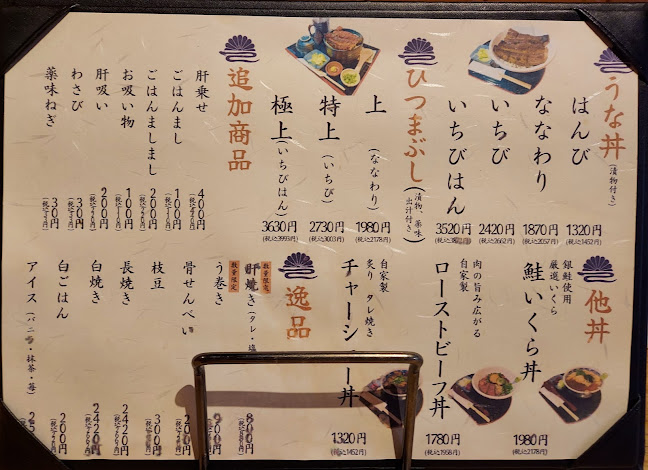 うな丼
(漬物付き)
はんび
1320円
(税込1452円)
ななわり
1870円
(税込2057円)
いちび
2420円
(税込2662円)
いちびはん
3520円
ひつまぶし
(漬物、薬味
出汁付き)
上
(ななわり)
1980円
(税込2178円)
特上
(いちび)
2730円
(税込3003円)
極上
(いちびはん)
3630円
(税込3993円)
追加商品
肝乗せ
400円
(税込440円)
ごはんまし
100円
(税込110円)
ごはんましまし
200円
(税込220円)
お吸い物
100円
(税込110円)
肝吸い
200円
(税込220円)
わさび
30円
(税込33円)
薬味ねぎ
30円
(税込33円)
他丼
銀鮭使用
厳選いくら
鮭いくら丼
1980円
(税込2178円)
肉の旨み広がる
自家製
ローストビーフ丼
1780円
(税込1958円)
自家製
炙り タレ焼き
チャーシュー丼
1320円
(税込1452円)
逸品
数量限定
肝焼き
800円
数量限定
う巻き
900円
骨せんべい
枝豆
300円
長焼き
2420円
白焼き
2420円
白ごはん
200円
アイス(バニラ・抹茶・苺)